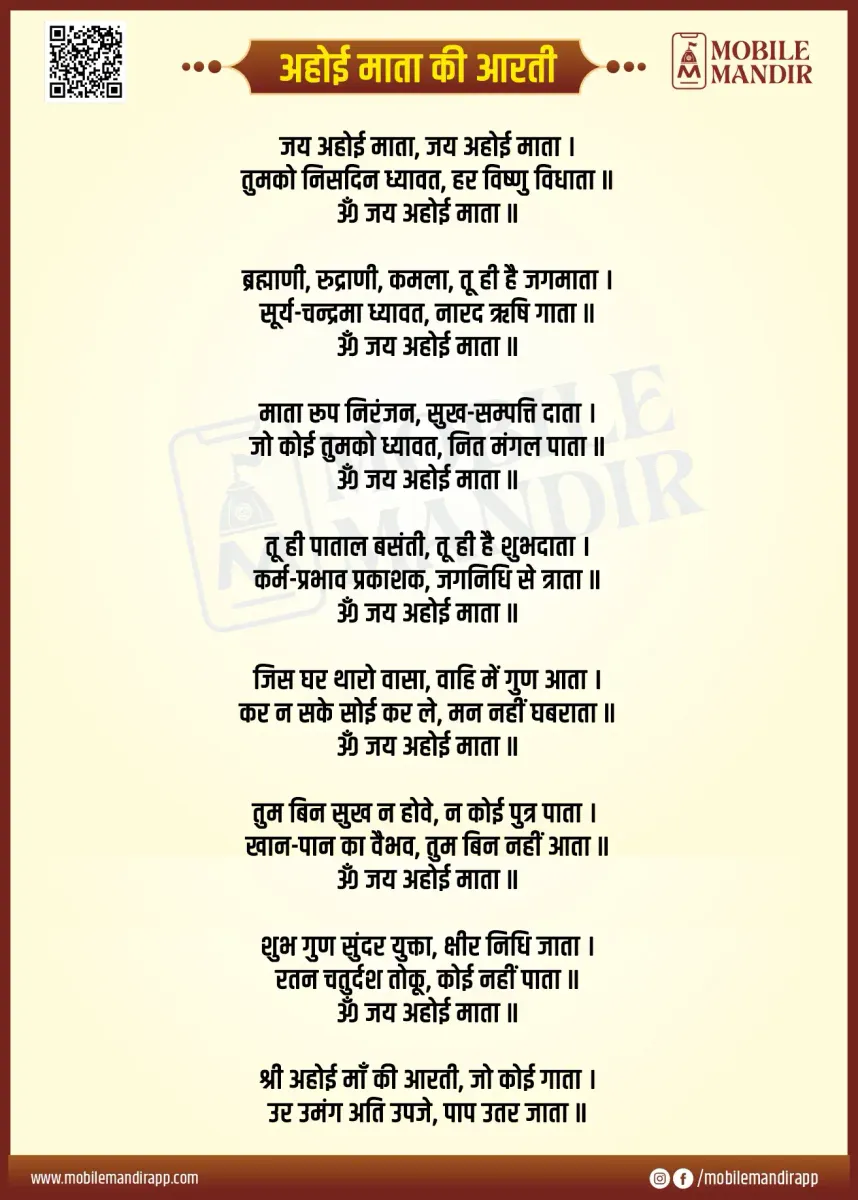 अहोई माता की आरती
MOBILE
MANDIR
जय अहोई माता, जय अहोई माता ।
तुमको निसदिन ध्यावत, हर विष्णु विधाता ॥
ॐ जय अहोई माता ॥
ब्रह्माणी, रुद्राणी, कमला, तू ही है जगमाता ।
सूर्य-चन्द्रमा ध्यावत, नारद ऋषि गाता ॥
ॐ जय अहोई माता ॥
माता रूप निरंजन, सुख-सम्पत्ति दाता ।
जो कोई तुमको ध्यावत, नित मंगल पाता ॥
ॐ जय अहोई माता ॥
तू ही पाताल बसंती, तू ही है शुभदाता ।
कर्म-प्रभाव प्रकाशक, जगनिधि से त्राता ॥
ॐ जय अहोई माता ॥
जिस घर थारो वासा, वाहि में गुण आता ।
कर न सके सोई कर ले, मन नहीं घबराता ॥
ॐ जय अहोई माता ॥
तुम बिन सुख न होवे, न कोई पुत्र पाता ।
खान-पान का वैभव, तुम बिन नहीं आता ॥
ॐ जय अहोई माता ॥
शुभ गुण सुंदर युक्ता, क्षीर निधि जाता ।
रतन चतुर्दश तोकू, कोई नहीं पाता ॥
ॐ जय अहोई माता ॥
श्री अहोई माँ की आरती, जो कोई गाता ।
उर उमंग अति उपजे, पाप उतर जाता ॥
MOBILE
MANDIR
www.mobilemandirapp.com
/mobilemandirapp